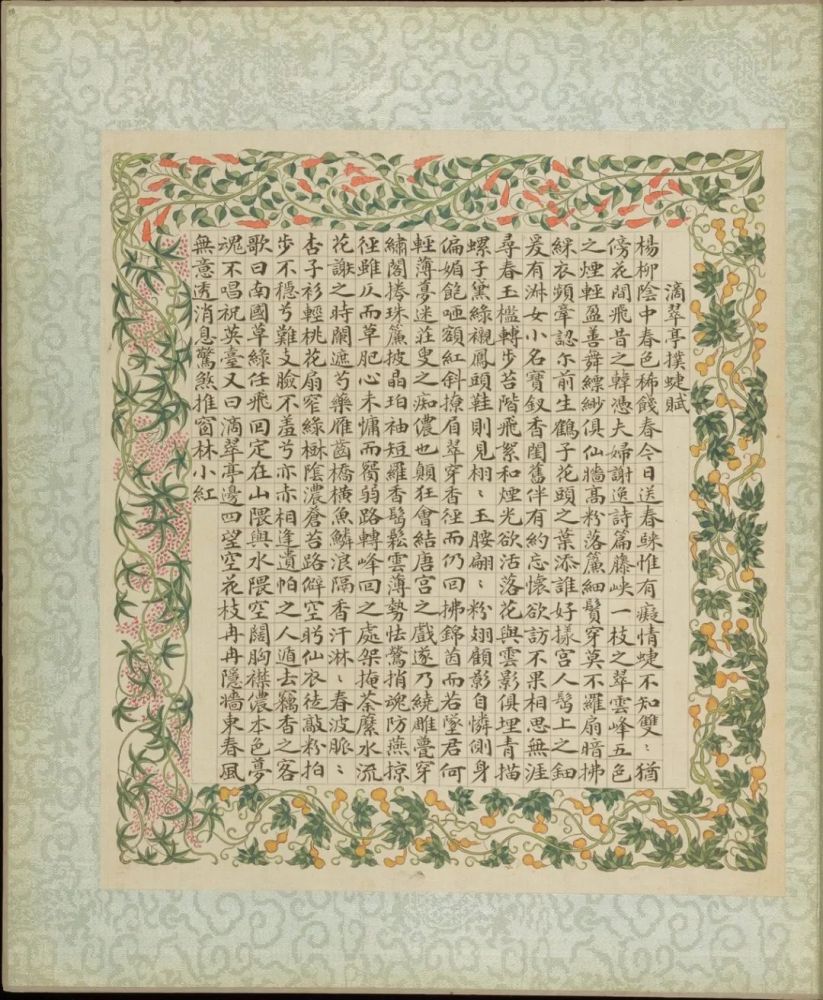 滴翠亭撲蜨賦
楊柳陰中春色稀餞春今日送春歸惟有癡情蜨不知雙〻猶
傍花間飛昔之韓憑夫婦謝逸詩篇藤峽一枝之翠雲峰五色
之煙輕盈善舞縹緲俱仙牆高粉落簾細鬢穿莫不羅扇暗拂
綵衣頻牽認尔前生鶴子花頭之葉添誰好様宮人髩上之鈿
爰有淑女小名寶釵香閨舊伴有約忘懷欲訪不果相思無涯
尋春玉檻轉步苔階飛絮和煙光欲活落花與雲影俱埋青描
螺子黛綠襯鳳頭鞋則見栩〻玉腰翩〻粉翅顧影自憐側身
偏媚飽咂額紅斜撩眉翠穿香徑而仍回拂錦茵而若墜君何
輕薄夢迷莊叟之痴儂也顛狂會結唐宮之戲遂乃繞雕甍穿
繡閣捲珠簾披晶珀袖短羅香髩鬆雲薄勢怯驚捎魂防燕掠
徑雖仄而草肥心未慵而鬢弱路轉峰回之處架掩荼蘼水流
花謝之時闌遮芍藥雁齒橋橫魚鱗浪隔香汗淋〻春波脈〻
杏子衫輕桃花扇窄綠樹陰濃蒼苔路僻空盻仙衣徒敲粉拍
步不穩兮難支臉不羞兮亦赤相逢遺帕之人遁去竊香之客
歌曰南國草綠任飛回定在山隈與水隈空闊胸襟儂本色夢
魂不唱祝英臺又曰滴翠亭邊四望空花枝冉冉隱牆東春風
無意透消息驚煞推窗林小紅